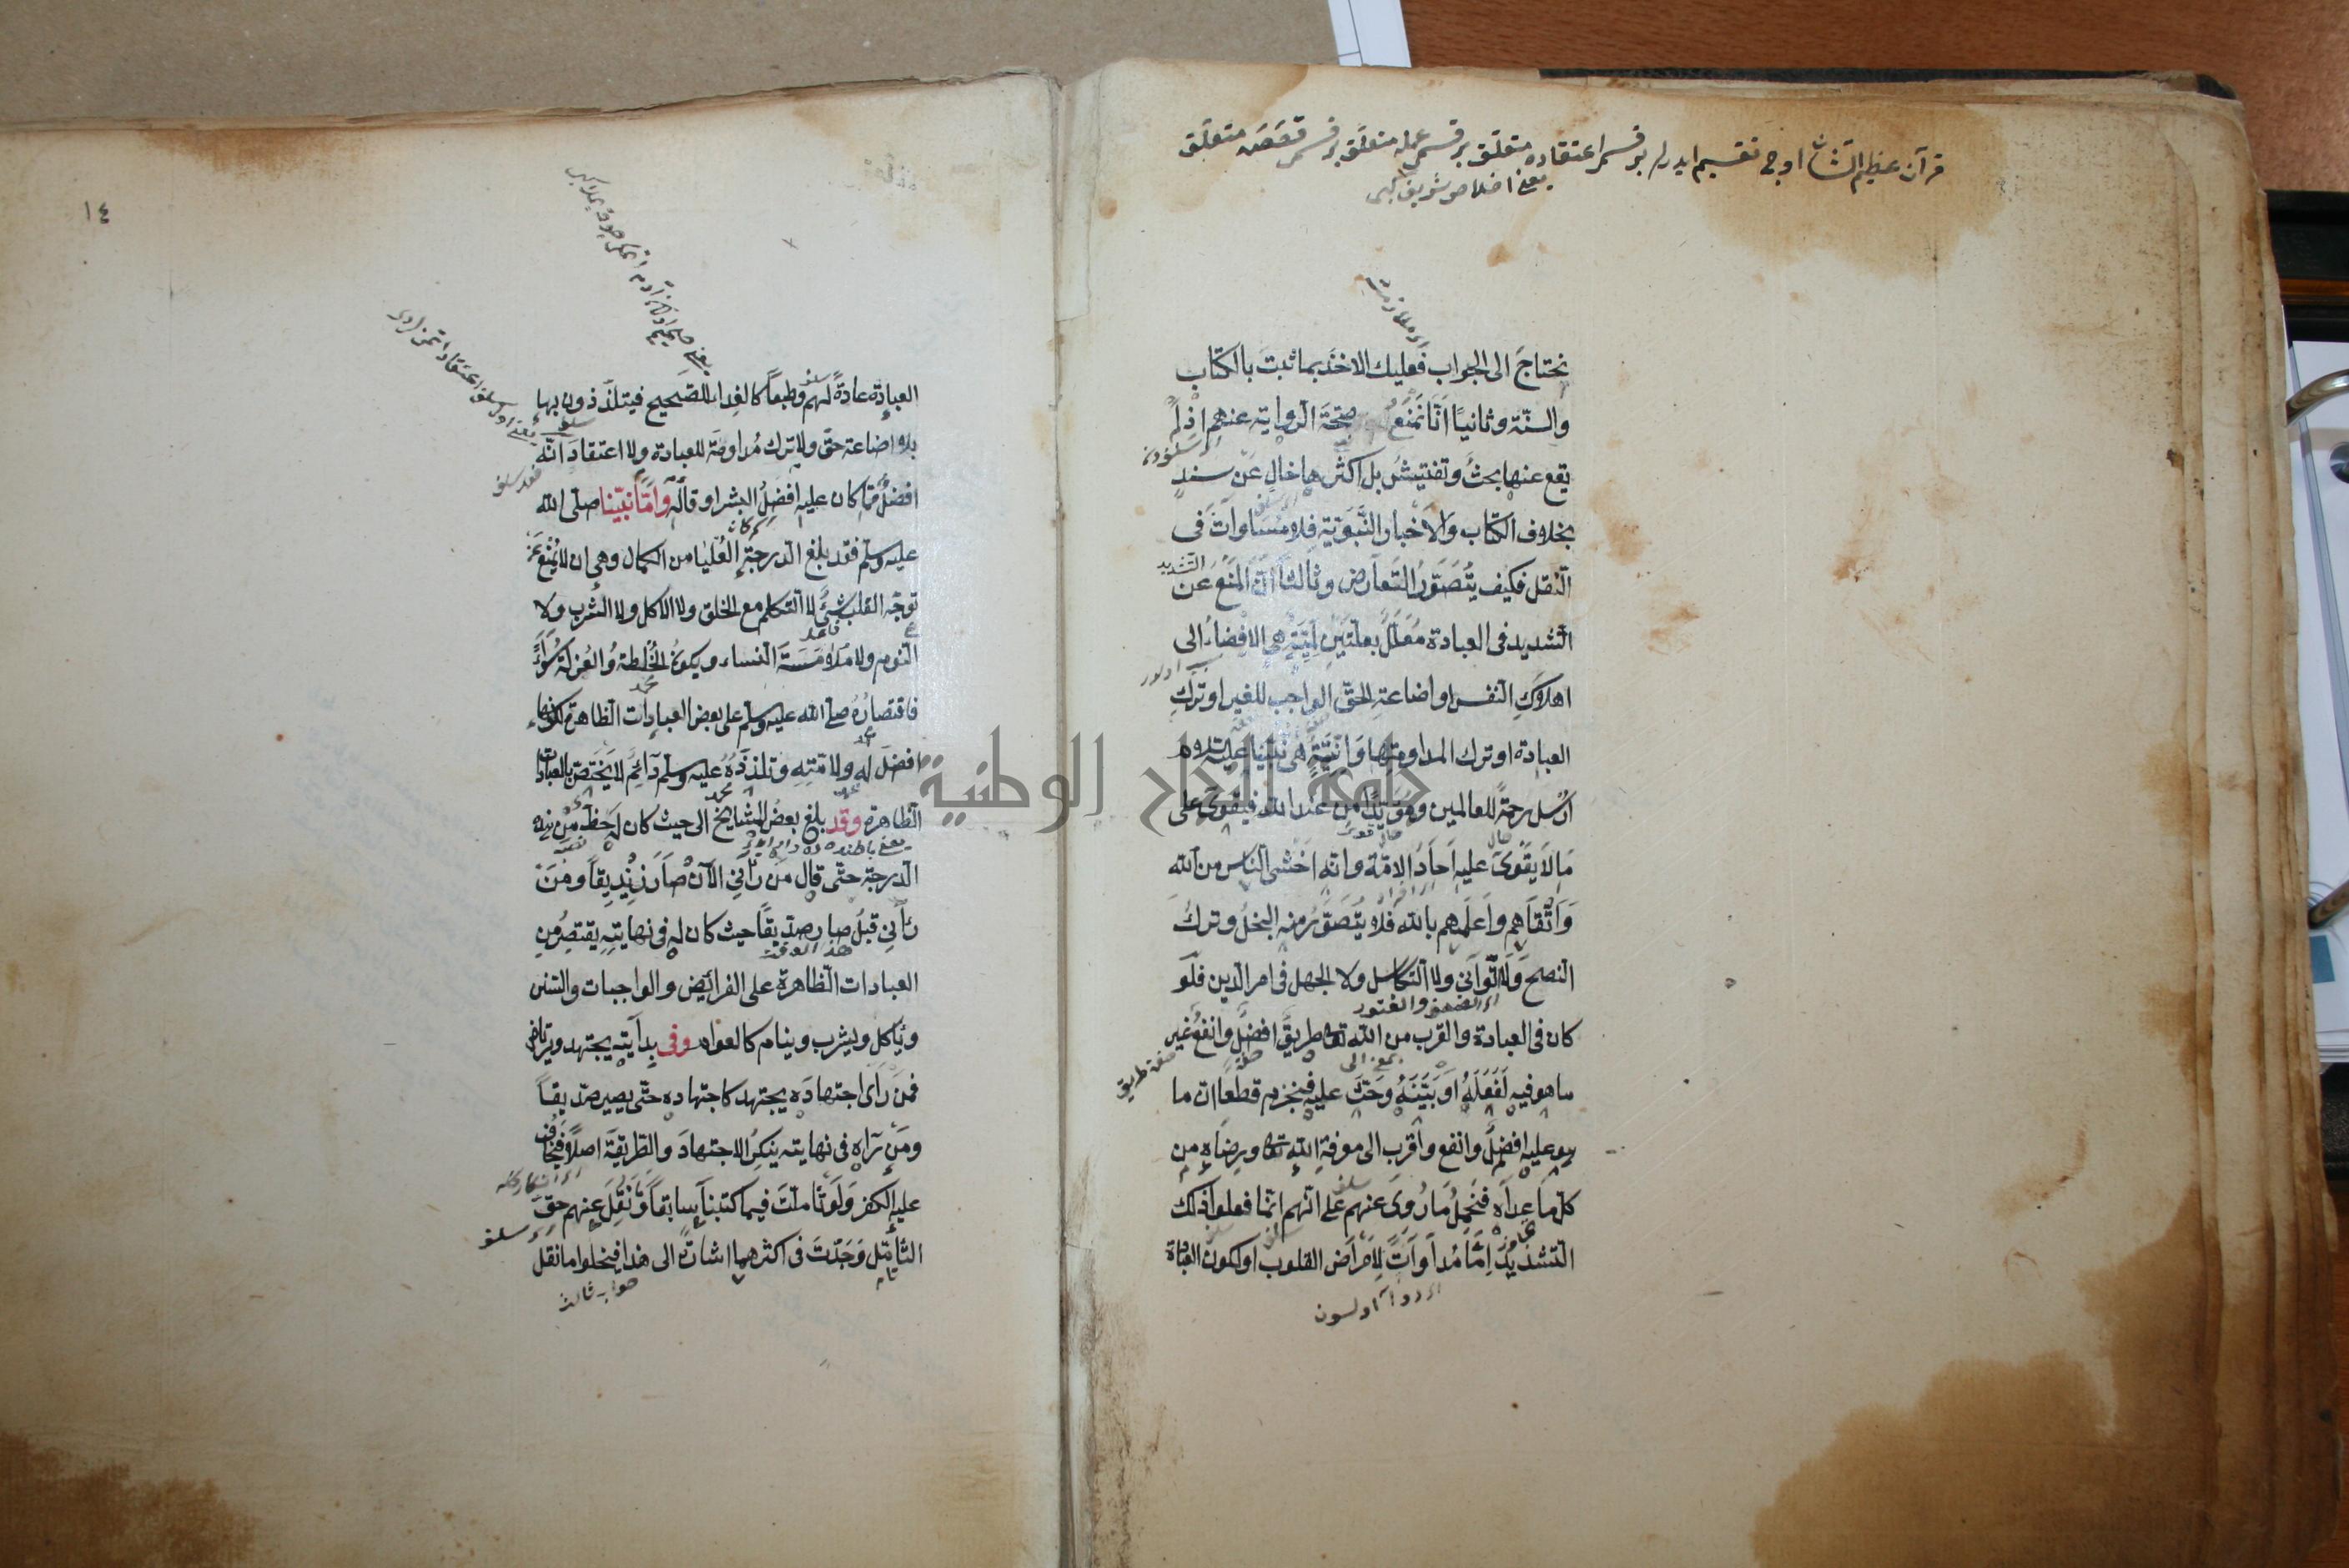 قرآن عظيم الشان اوچ تقسيم ايدرلر بر قسم اعتقاده متعلق بر قسم عمله متعلق بر قسم قصصه متعلق
يعنى اخلاص شريف كبى
نحتاج الى الجواب فعليك الاخذ بما ثبت بالكتاب
والسنّة وثانيًا انّا نمنع صحّة الرواية عنهم اذ لم
يقع عنها بحث وتفتيش بل اكثرها خالٍ عن سند
بخلاف الكتاب والاخبار النبوية فلا مساوات فى
النقل فكيف يتصوّر التعارض وثالثا انّ المنع عن
التشديد
التشديد فى العبادة معلّل بعلّتين لمّيّة هى الافضاء الى
اهلاك النفس او اضاعة الحقّ الواجب للغير او ترك
العبادة او ترك المداومتها وانّيّة هى نبيّنا عليه السلام
ارسل رحمة للعالمين ومؤيّدا من عند الله فيقوى على
ما لا يقوى عليه احاد الامّة وانّه اخشى الناس من الله
واتقاهم واعلمهم بالله فلا يتصوّر منه البخل وترك
النصح ولا التوانى ولا التكاسل ولا الجهل فى امر الدين فلو
اى الضعف والفتور
كان فى العبادة والقرب من الله تعا طريق افضل وانفع غير
صفت طريق
ما هو فيه لفعله او بيّنه وحثّ عليه فنجزم قطعا ان ما
هو عليه افضل وانفع واقرب الى معرفة الله تعا ورضاه من
كل ما عداه فنحمل ما روى عنهم على انّهم انّما فعلوا ذلك
التشديد امّا مداواة لامراض القلوب او لكون العبادة
١٤
العبادة عادة لهم وطبعا كالغداء للصحيح فيتلذّذون بها
بلا اضاعة حق ولا ترك مداومة للعبادة ولا اعتقاد انّه
افضل ممّا كان عليه افضل البشر او قاله وامّا نبيّنا صلى الله
عليه وسلم فقد بلغ الدرجة العليا من الكمال وهى ان لا يمنع عن
توجّه القلب شئ لا التكلم مع الخلق ولا الاكل ولا الشرب ولا
النوم ولا ملامسة النساء ويكون الخلطة والعزلة سواء
فاقتصاره صلى الله عليه وسلم على بعض العبادات الظاهرة لكونها
افضل له ولامّته وتلذّذه عليه وسلم دائم لا يختص بالعبادات
الظاهرة وقد بلغ بعض المشايخ الى حيث كان له حظ من هذه
الدرجة حتّى قال من رأنى الآن صار زنديقا ومن
رأنى قبل صار صدّيقا حيث كان له فى نهايته يقتصر من
العبادات الظاهرة على الفرائض والواجبات والسنن
ويأكل ويشرب وينام كالعوام وفى بدايته يجتهد ويرتاض
فمن رأى اجتهاده يجتهد كاجتهاده حتّى يصير صدّيقا
ومن رآه فى نهايته ينكر الاجتهاد والطريقة اصلا فيخاف
عليه الكفر ولو تأملت فيما كتبنا سابقا ونقل عنهم حقّ
التأمّل وجدت فى اكثرهما اشارة الى هذا فيحلوا ما نقل
جواب ثالث
جامعة النجاح الوطنية